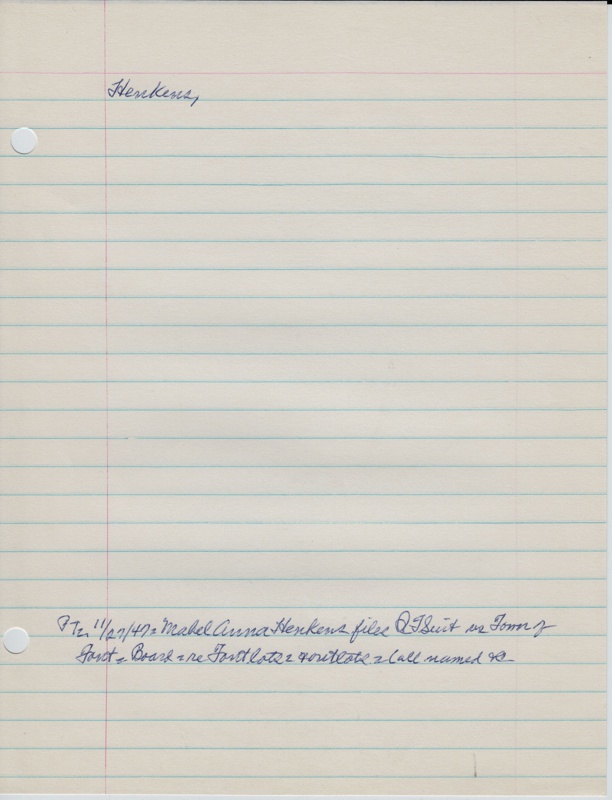 Henkens,
11/27/47 = Mabel Anna Henkens files Q T Suit vs Town of
Font = Board = re Fontlots = & outlots = (all named &c